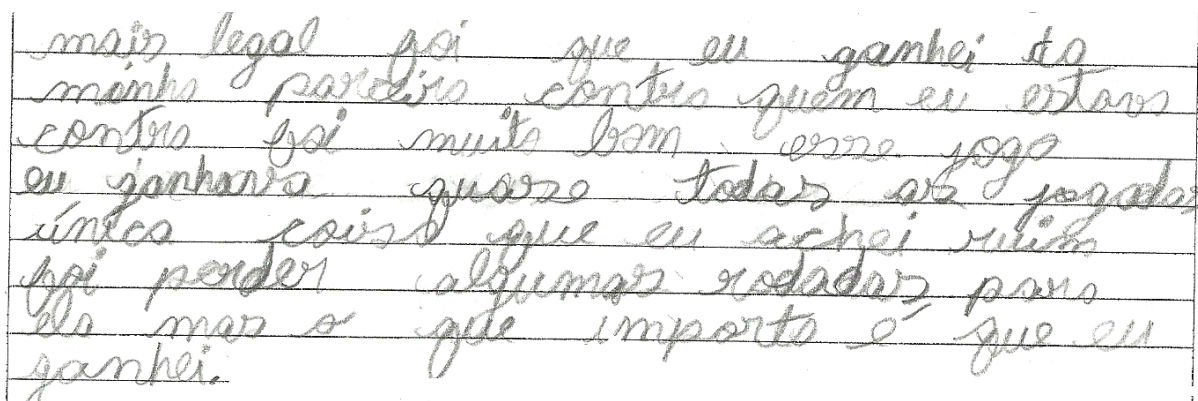 mais legal foi que eu ganhei da
minha parceira contra quem eu estava
contra foi muito bom esse jogo
eu ganhava quase todas as jogadas
única coisa que eu achei ruim
foi perder algumas rodadas para
ela mas o que importa é que eu
ganhei.